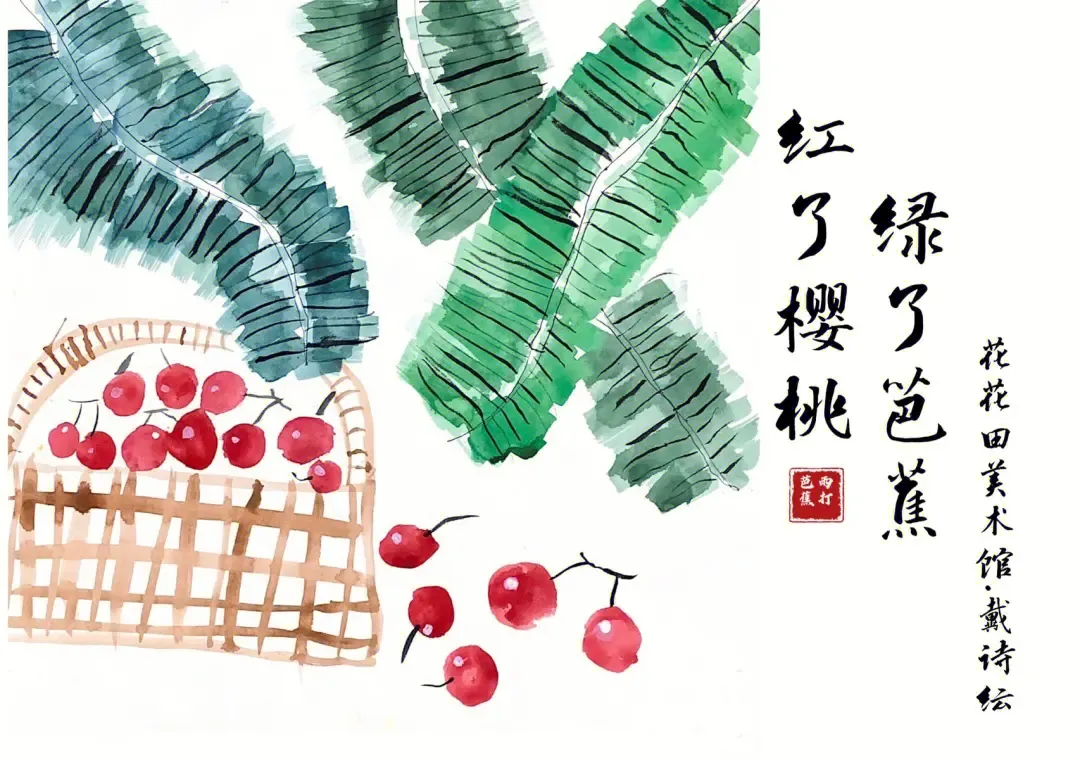 红了樱桃
绿了芭蕉
雨打
芭蕉
花花田美术馆·戴诗纭